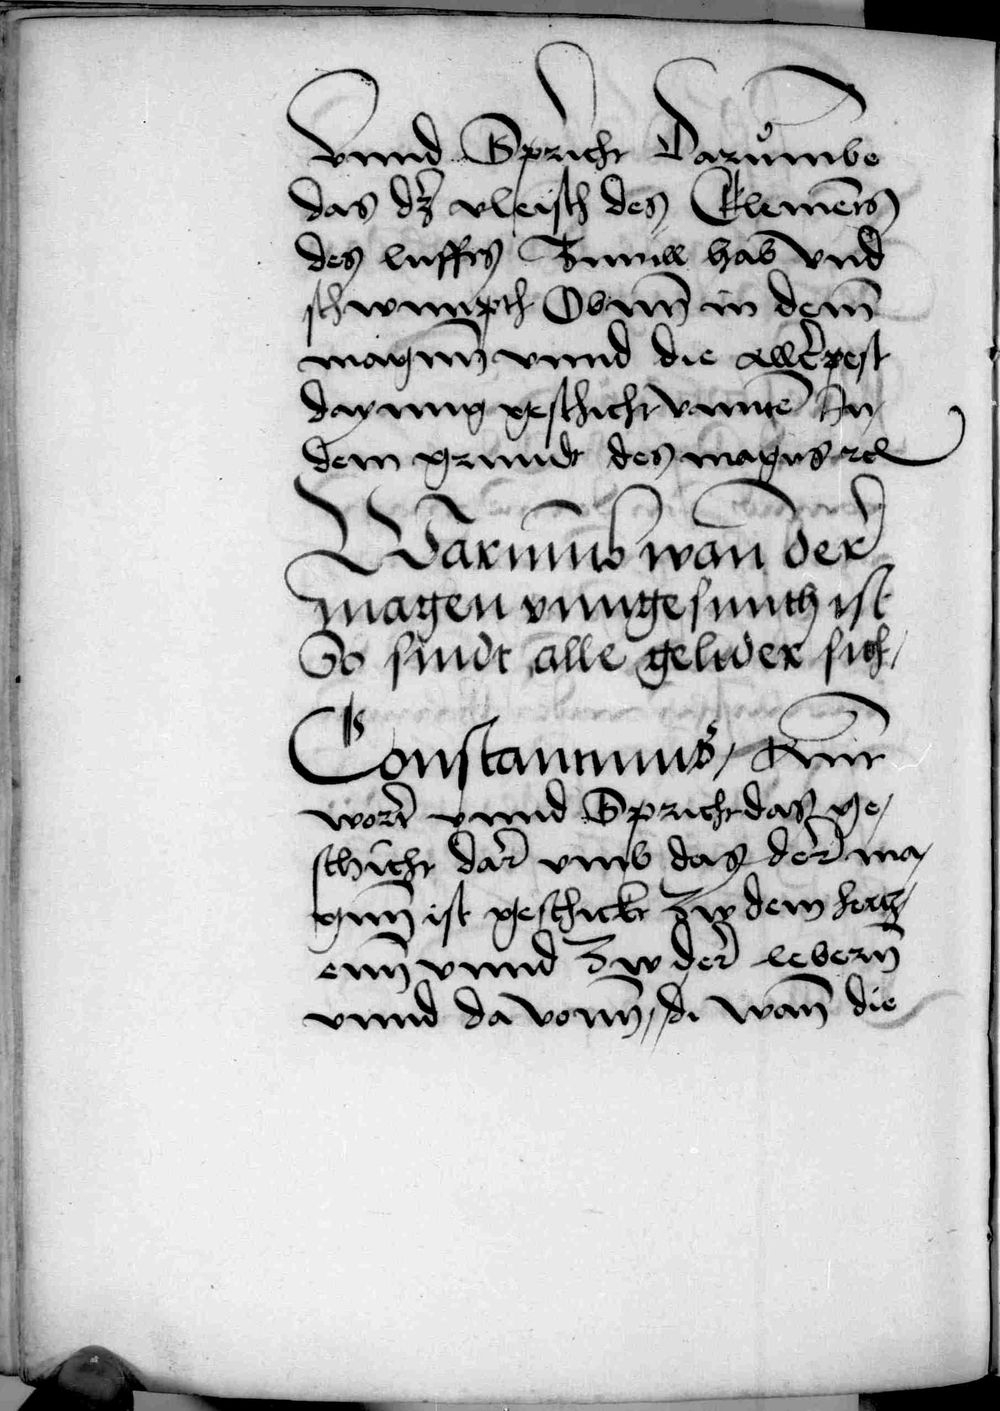 Vnnd Spricht Darůmbe
das dz vleisch des Elemēts
des luffts Zuuill hab vnd
schwimpth Obnn̄ in dem̄
magnn̄ vnnd die aller pest
dayung geschicht vnntē In
dem grundt des magns
Warumb wan̄ der
magen vnngesunth ist
So sindt alle gelider sich /
Constantinus / Anntt
wortt vnnd Spricht das ge /
schicht dar vmb das der ma /
gnn̄ ist geschickt Zw dem hertz /
enn̄ vnnd Zw der lebern̄
vnnd da vonn̄ // wan̄ die